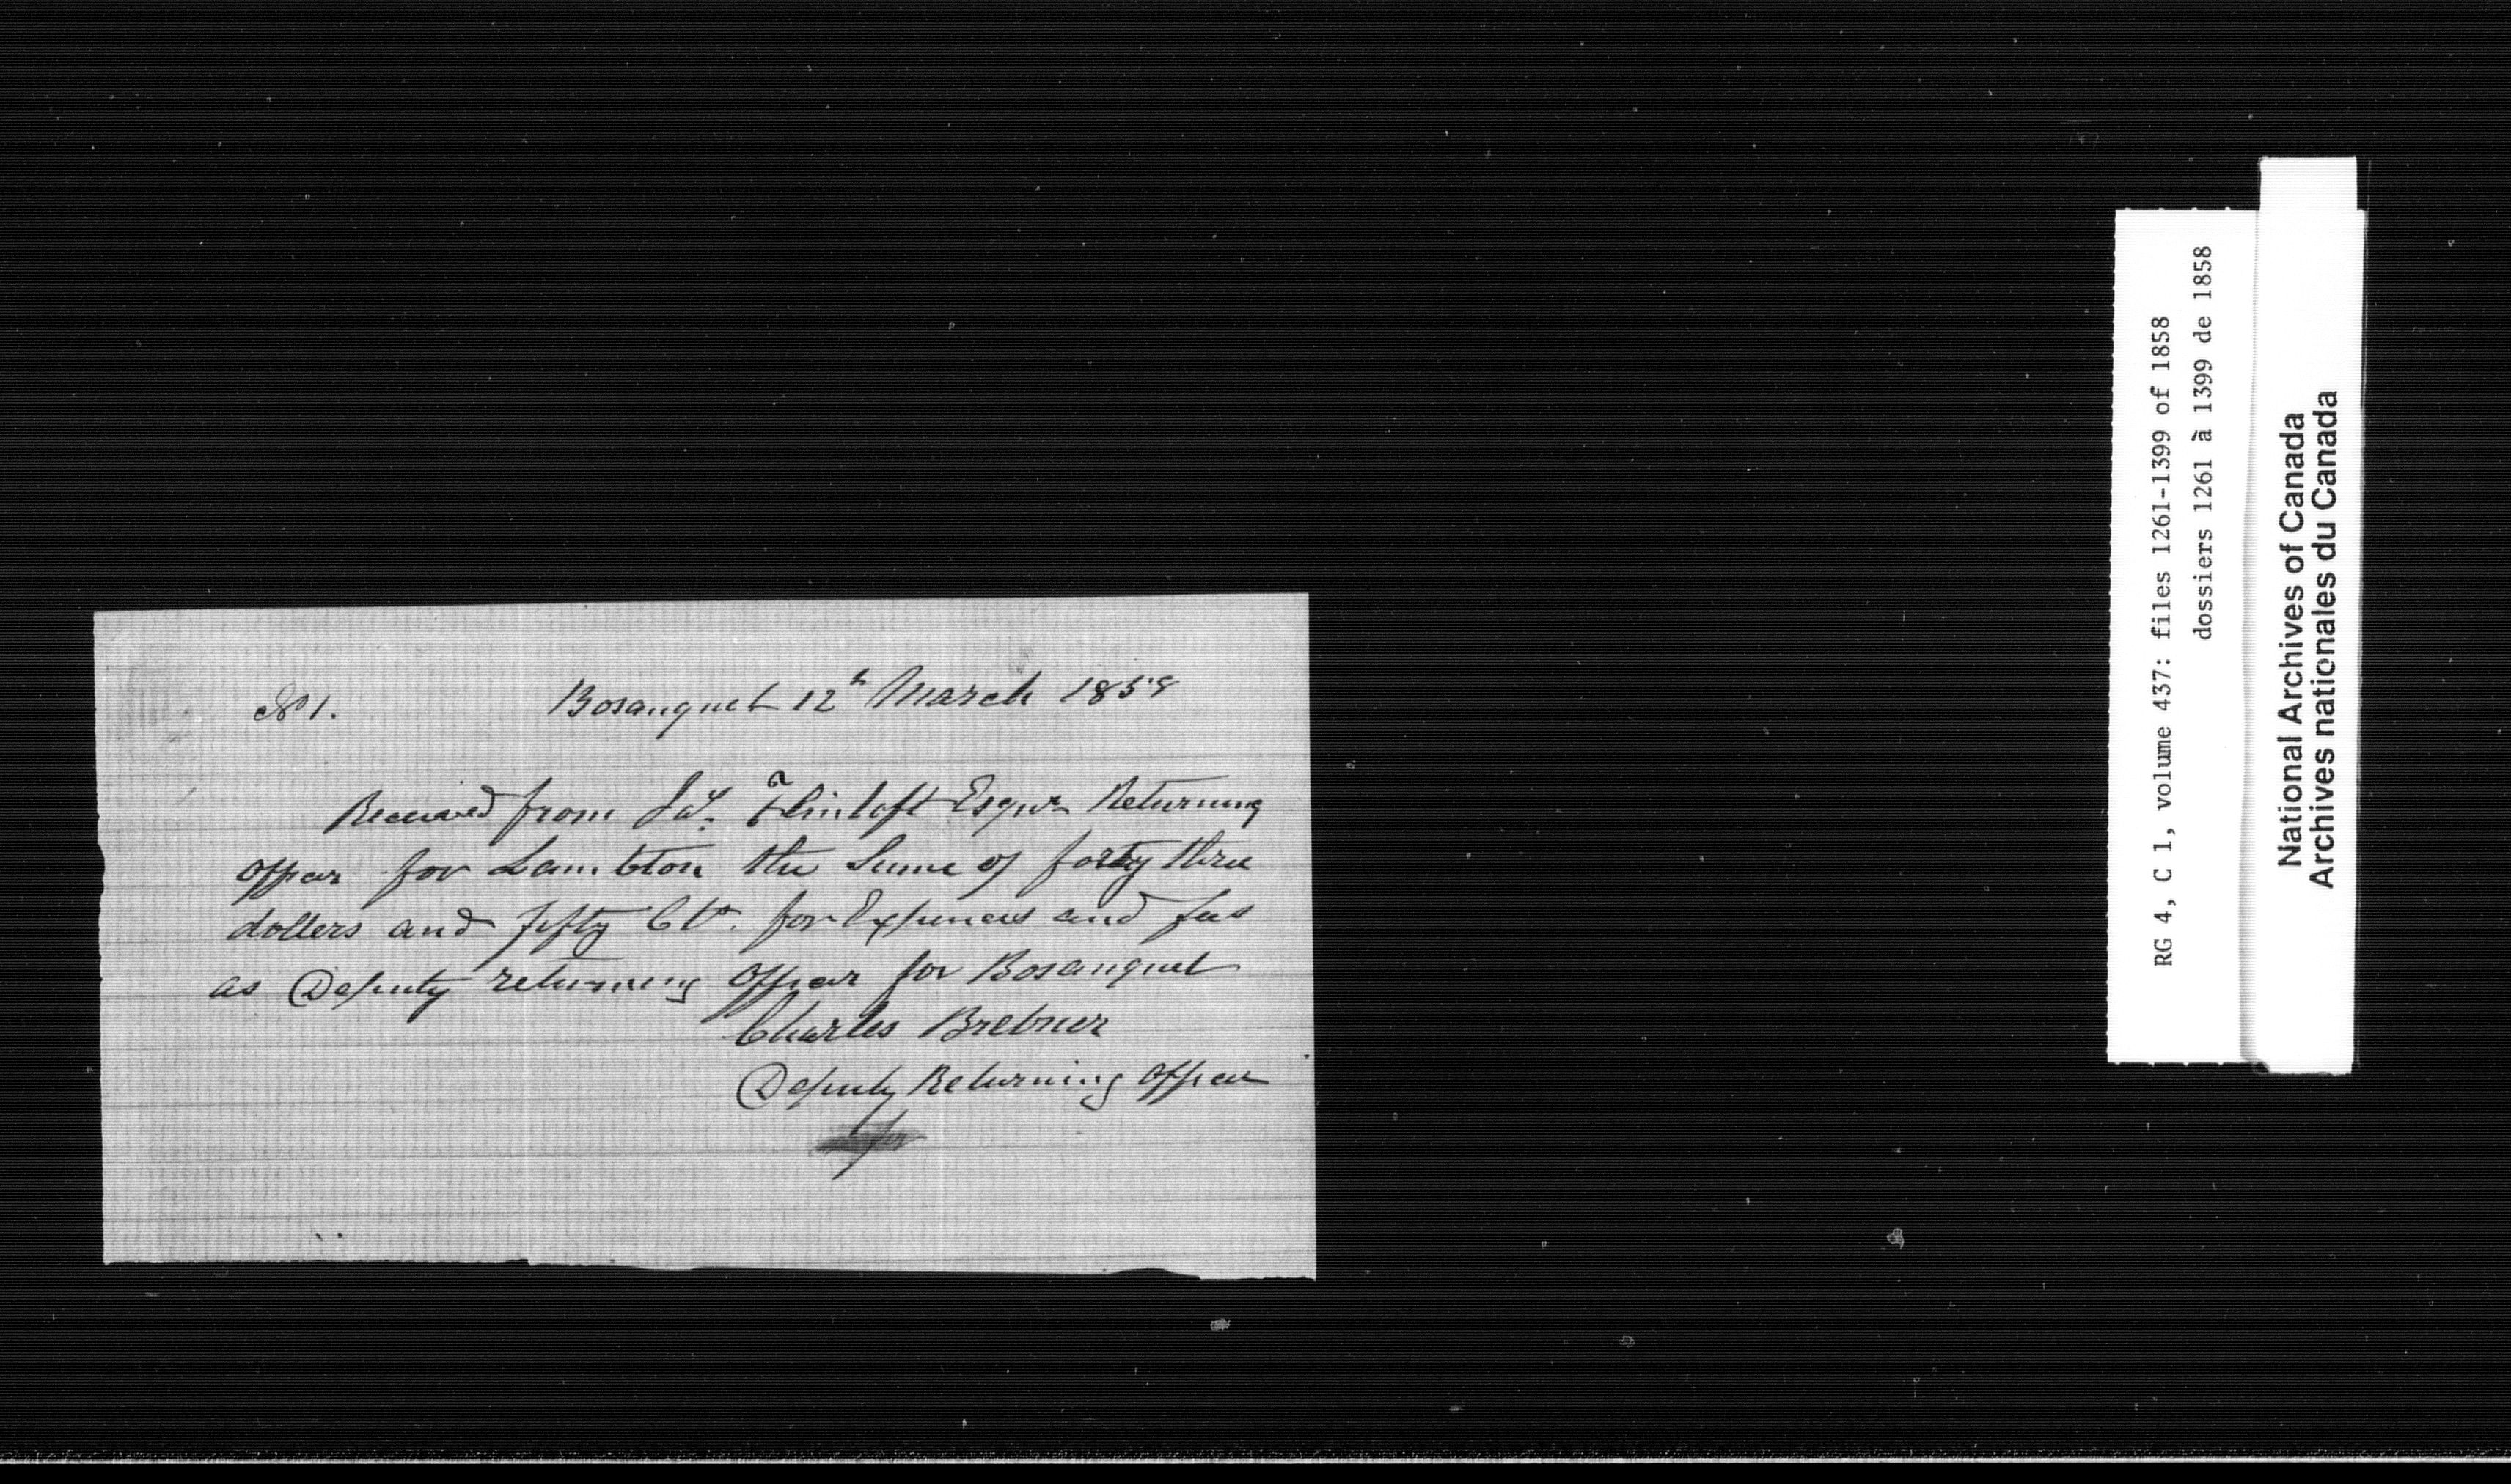 No 1. Bosanquet 12th March 1858
Received from Jas. Flintoft Esqur Returning
Officer for Lambton the Sume of forty three
dollers and fifty Cts. for Expences and fees
as Deputy returning Officer for Bosanquet
Charles Brebner
Deputy Returning Officer
for
RG 4, C 1, volume 437: files 1261-1399 of 1858
dossiers 1261 à 1399 de 1858
National Archives of Canada
Archives nationales du Canada